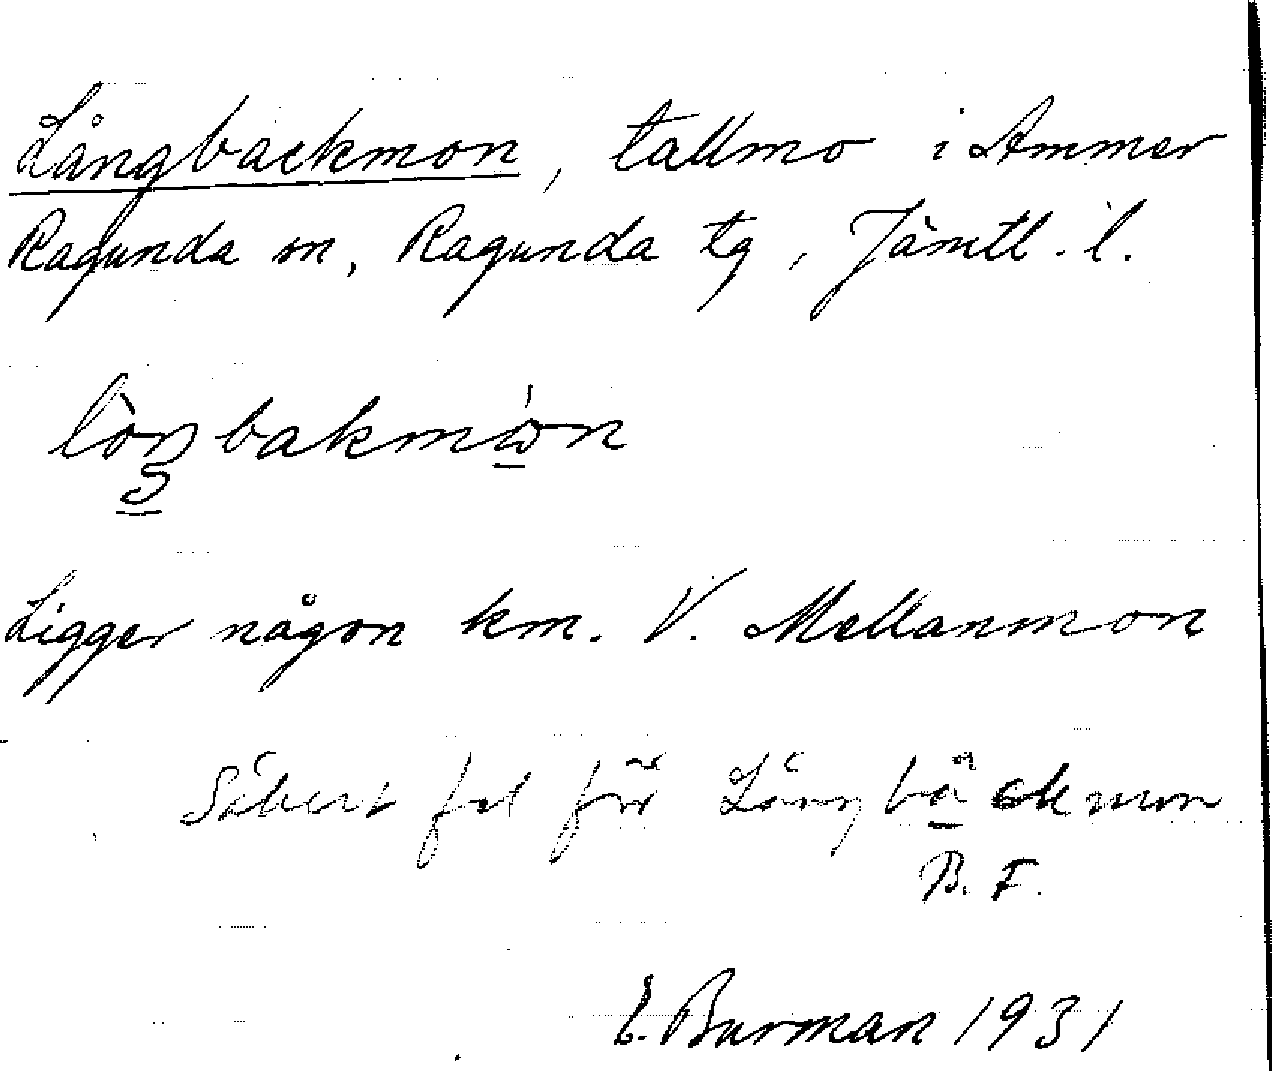 Långbackmon, tallmo i Ammer
Ragunda sn, Ragunda tg, Jämtl. l.
lòŋbakmẃn
Ligger någon km. V. Mellanmon
Säkert fel för Långbäckmon
B. F.
E. Burman 1931